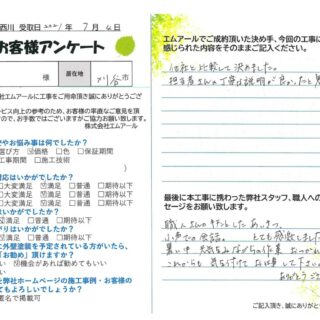 西川 受取日 2021年 7月 4日
お客様アンケート
様 所在地 刈谷市
社エムアールに工事をご用命頂き誠にありがとうござ
ービス向上の参考のため、お客様の率直なご意見を頂
すので、お手数ではございますがご協力お願い致します。
株式会社エムアール
安やお悩み事は何でしたか?
選び方 価格 □色 □保証期間
工事期間 □施工技術
対応はいかがでしたか?
大変満足 満足 □普通 □期待以下
はいかがでしたか?
大変満足 満足 □普通 □期待以下
がりはいかがでしたか?
大変満足 満足 □普通 □期待以下
に外壁塗装を予定されている方がいたら、
「お勧め」頂けますか?
い 機会があれば勧めてもいい
ない
弊社ホームページの施工事例・お客様の
てもよろしいでしょうか?
匿名で掲載可
エムアールでご成約頂いた決め手、今回の工事に
感じられた内容をそのままご記入ください。
他社と比較して決めました。
担当者さんの丁寧な説明が良かったと思
最後に本工事に携わった弊社スタッフ、職人への
セージをお願い致します。
職人さんのキチンとしたあいさつ、
小声での会話。 とても感謝しました
暑い中
これからも 気を付けて お仕事して下さい。
ありがとうござ
ご記入頂き、誠にありがと